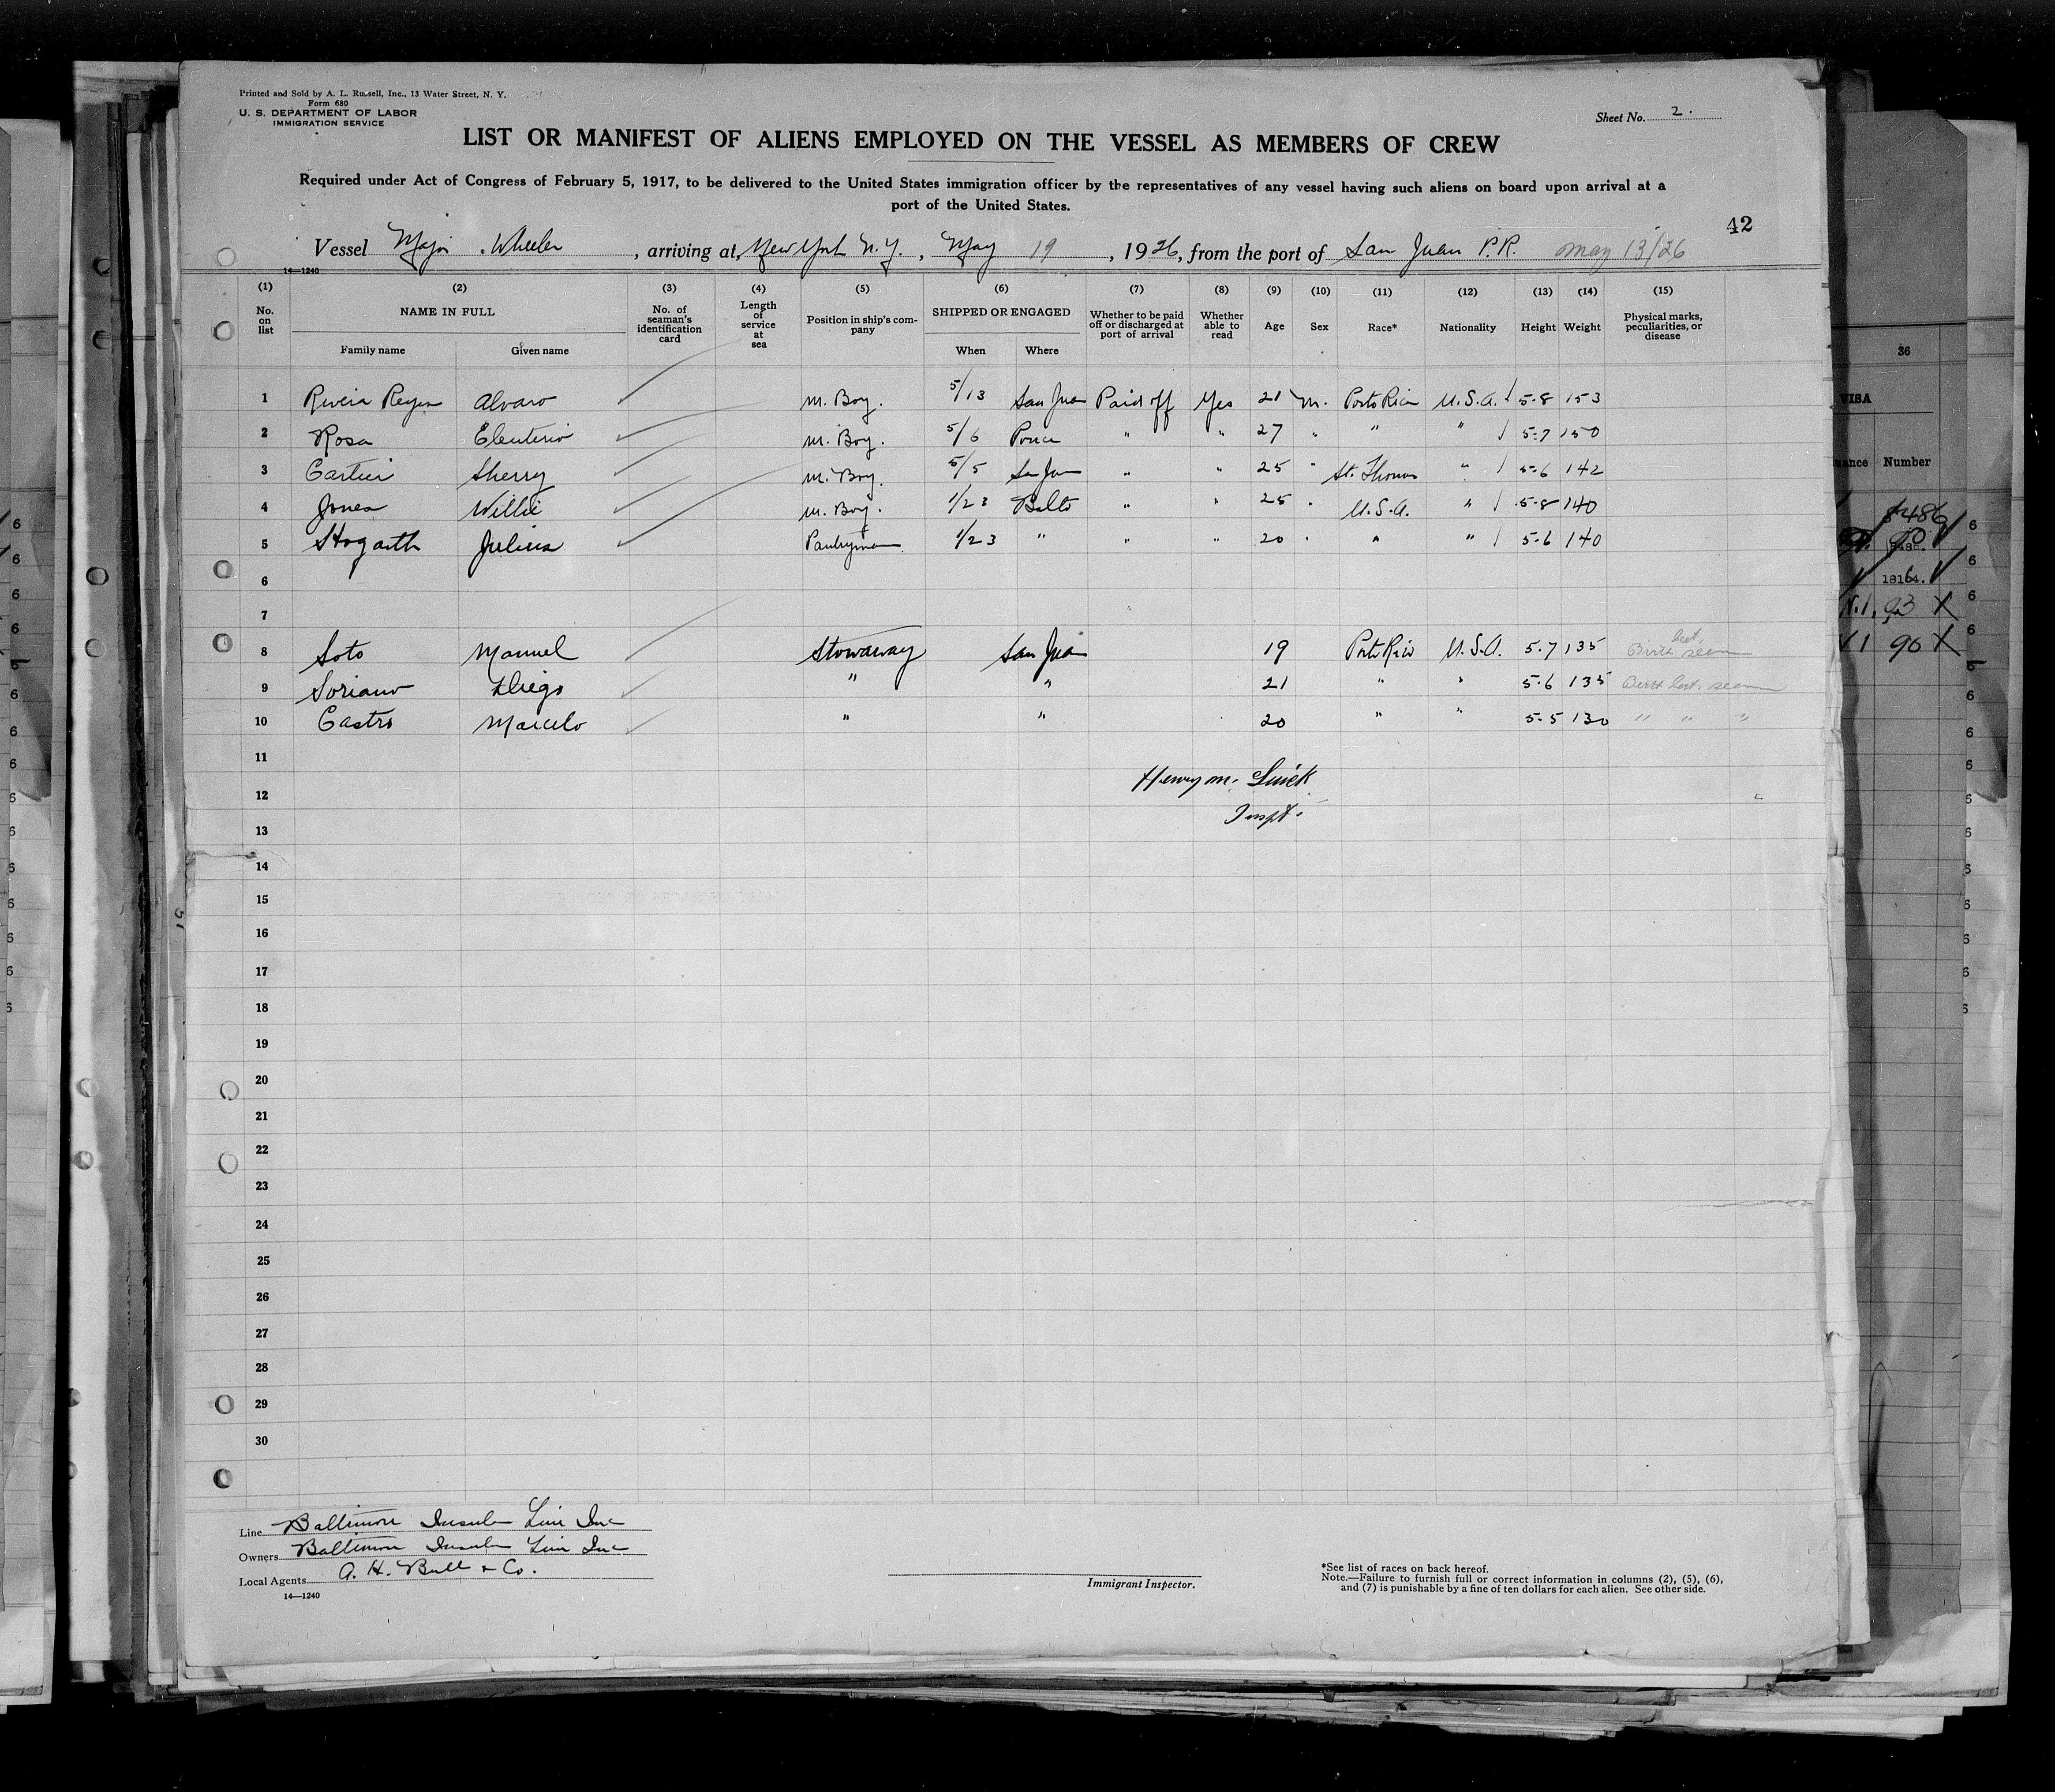 Printed and Sold by A. L. Russell, Inc., 13 Water Street, N. Y.
Form 680
U. S. DEPARTMENT OF LABOR
IMMIGRATION SERVICE
Sheet No. 2.
LIST OR MANIFEST OF ALIENS EMPLOYED ON THE VESSEL AS MEMBERS OF CREW
Required under Act of Congress of February 5, 1917, to be delivered to the United States immigration officer by the representatives of any vessel having such aliens on board upon arrival at a
port of the United States.
42
Vessel Major Wheeler, arriving at New York N.Y., May 19, 1926, from the port of San Juan P.R. May 13/26
14—1240
(1) (2) (3) (4) (5) (6) (7) (8) (9) (10) (11) (12) (13) (14) (15)
No. on list NAME IN FULL Family name Given name No. of seaman's identification card Length of service at sea Position in ship's company SHIPPED OR ENGAGED When Where Whether to be paid off or discharged at port of arrival Whether able to read Age Sex Race* Nationality Height Weight Physical marks, peculiarities, or disease
1 Rivera Reyes Alvaro m. Boy. 5/13 San Juan Paid off Yes 21 m. Porto Rico U.S.A. 5-8 153
2 Rosa Eleuterio m. Boy. 5/6 Ponce " " 27 " " " 5-7 150
3 Cartier Sherry m. Boy. 5/5 San Juan " " 25 " St. Thomas " 5-6 142
4 Jones Willie m. Boy. 1/23 Balto " " 25 " U.S.A. " 5-8 140
5 Hogarth Julius Pantryman 1/23 " " " 20 " " " 5-6 140
6
7
8 Soto Manuel Stowaway San Juan 19 Porto Rico U.S.A. 5-7 135 Birth cert. seen
9 Soriano Diego " " 21 " " 5-6 135 Birth cert. seen
10 Castro Marcelo " " 20 " " 5-5 130 " " "
11
Henry M.
12
Inspt.
13
14
15
16
17
18
19
20
21
22
23
24
25
26
27
28
29
30
Line Baltimore Insular Line Inc
Owners Baltimore Insular Line Inc
Local Agents A. H. Bull & Co.
14—1240
Immigrant Inspector.
*See list of races on back hereof.
Note.—Failure to furnish full or correct information in columns (2), (5), (6),
and (7) is punishable by a fine of ten dollars for each alien. See other side.
36
VISA
Number